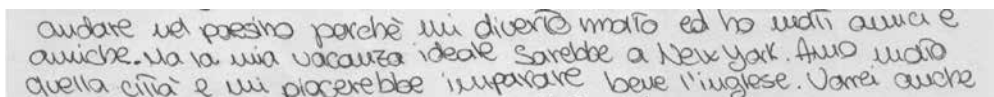 andare nel paesino perchè mi divertō molto ed ho molti amici e
amiche. Ma la mia vacanza ideale sarebbe a New York. Amo molto
quella città e mi piacerebbe imparare bene l'inglese. Vorrei anche